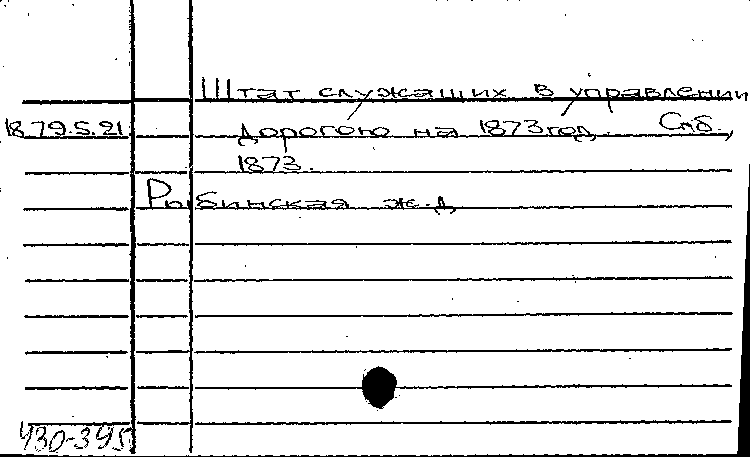 Штат служащих в управлении
18.79.5.21. дорогою на 1873 год. Спб.,
1873.
Рыбинская ж.д.
430-395